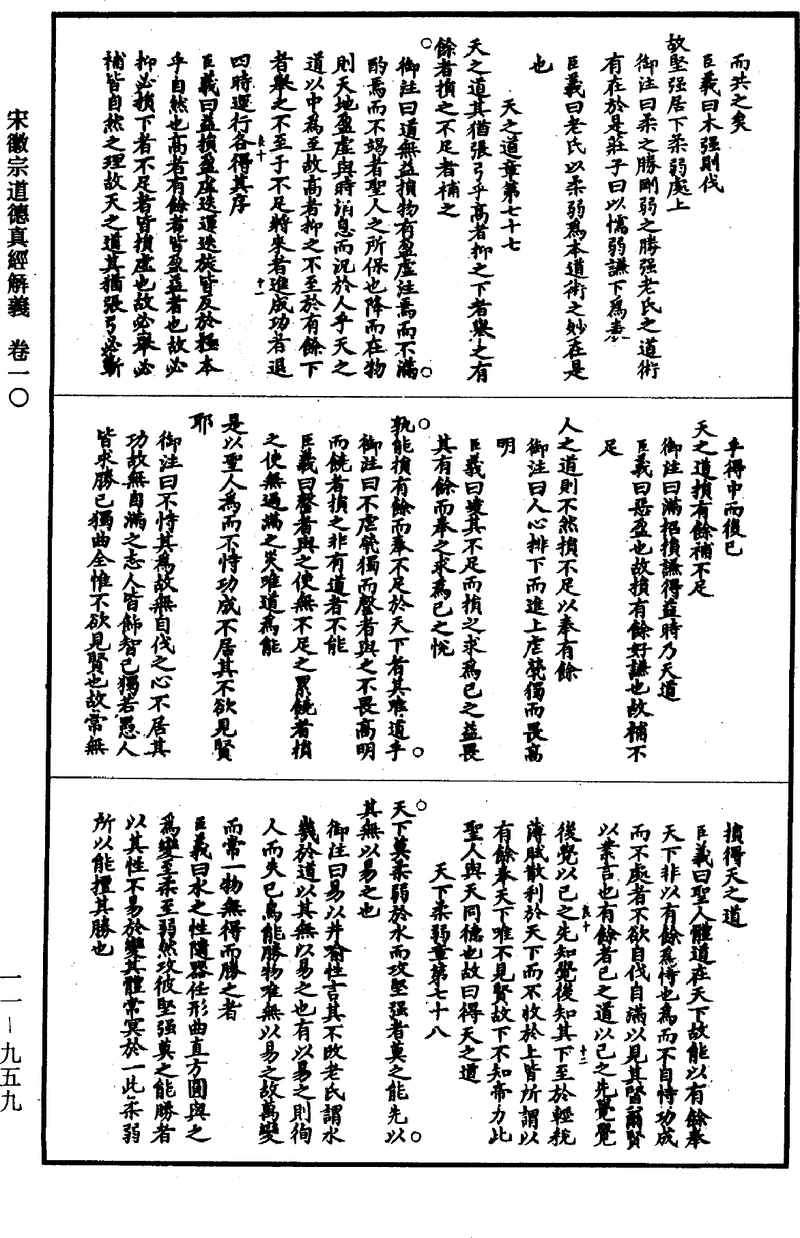 宋徽宗道德真經解義　卷一〇
而共之矣
臣義曰木强則伐
故堅强居下柔弱處上
御注曰柔之勝剛弱之勝强老氏之道術
有在於是莊子曰以懦弱謙下爲表
臣義曰老氏以柔弱爲本道術之妙在是
也
天之道章第七十七
天之道其猶張弓乎高者抑之下者舉之有
餘者損之不足者補之
御注曰道無益損物有盈虛注焉而不滿
酌焉而不竭者聖人之所保也降而在物
則天地盈虛與時消息而況於人乎天之
道以中爲至故高者抑之不至於有餘下
者舉之不至于不足將來者進成功者退
四時運行各得其序
臣義曰益損盈虛迭運迭旋皆反於極本
乎自然也高者有餘者皆盈益者也故必
抑必損下者不足者皆損虛也故必舉必
補皆自然之理故天之道其猶張弓必斲
乎得中而後已
天之道損有餘補不足
御注曰滿招損謙得益時乃天道
臣義曰惡盈也故損有餘好謙也故補不
足
人之道則不然損不足以奉有餘
御注曰人心排下而進上虐煢獨而畏高
明
臣義曰凌其不足而損之求爲已之益畏
其有餘而奉之求爲已之悅
孰能損有餘而奉不足於天下者其唯道乎
御注曰不虐煢獨而罄者與之不畏高明
而饒者損之非有道者不能
臣義曰罄者與之使無不足之累饒者損
之使無過滿之災唯道爲能
是以聖人爲而不恃功成不居其不欲見賢
耶
御注曰不恃其爲故無自伐之心不居其
功故無自滿之志人皆飾智己獨若愚人
皆求勝己獨曲全惟不欲見賢也故常無
損得天之道
臣義曰聖人體道在天下故能以有餘奉
天下非以有餘爲恃也爲而不自恃功成
而不處者不欲自伐自滿以見其賢爾賢
以業言也有餘者已之道以己之先覺覺
後覺以己之先知覺後知其下至於輕稅
薄賦散利於天下而不收於上皆所謂以
有餘奉天下唯不見賢故下不知帝力此
聖人與天同德也故曰得天之道
天下柔弱章第七十八
天下莫柔弱於水而攻堅强者莫之能先以
其無以易之也
御注曰易以井喻性言其不改老氏謂水
幾於道以其無以易之也有以易之則徇
人而失已烏能勝物唯無以易之故萬變
而常一物無得而勝之者
臣義曰水之性隨器任形曲直方圓與之
爲變至柔至弱然攻彼堅强莫之能勝者
以其性不易於變其體常冥於一此柔弱
所以能擅其勝也
一一—九五九